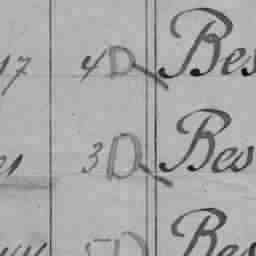 17 4 D Bes
21 3 D Bes
5 D Bes